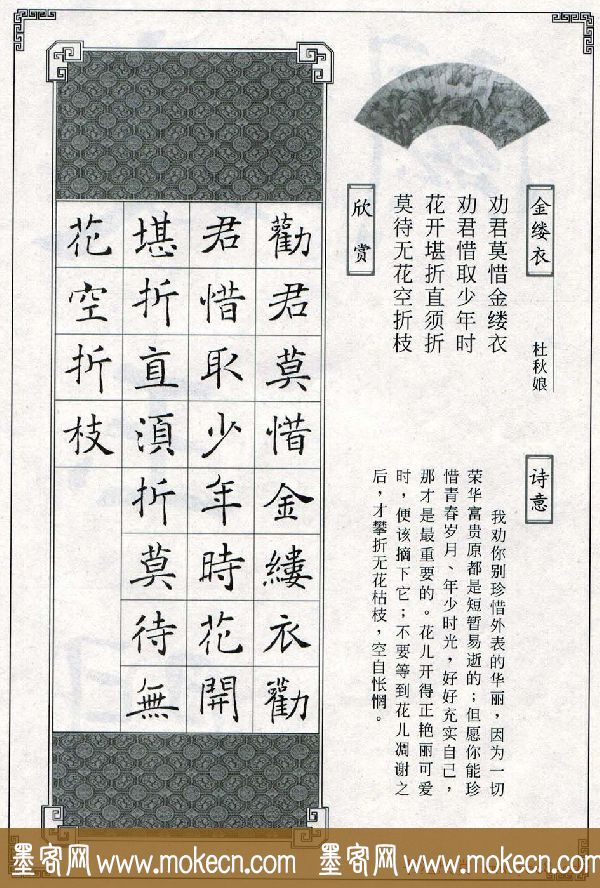 金缕衣
杜秋娘
劝君莫惜金缕衣
劝君惜取少年时
花开堪折直须折
莫待无花空折枝
诗意
我劝你别珍惜外表的华丽，因为一切
荣华富贵原都是短暂易逝的；但愿你能珍
惜青春岁月、年少时光，好好充实自己，
那才是最重要的。花儿开得正艳丽可爱
时，便该摘下它；不要等到花儿凋谢之
后，才攀折无花枯枝，空自怅惘。
欣赏
勸君莫惜金縷衣勸
君惜取少年時花開
堪折直須折莫待無
花空折枝
墨客网 www.mokecn.com 墨客网 www.mokecn.com